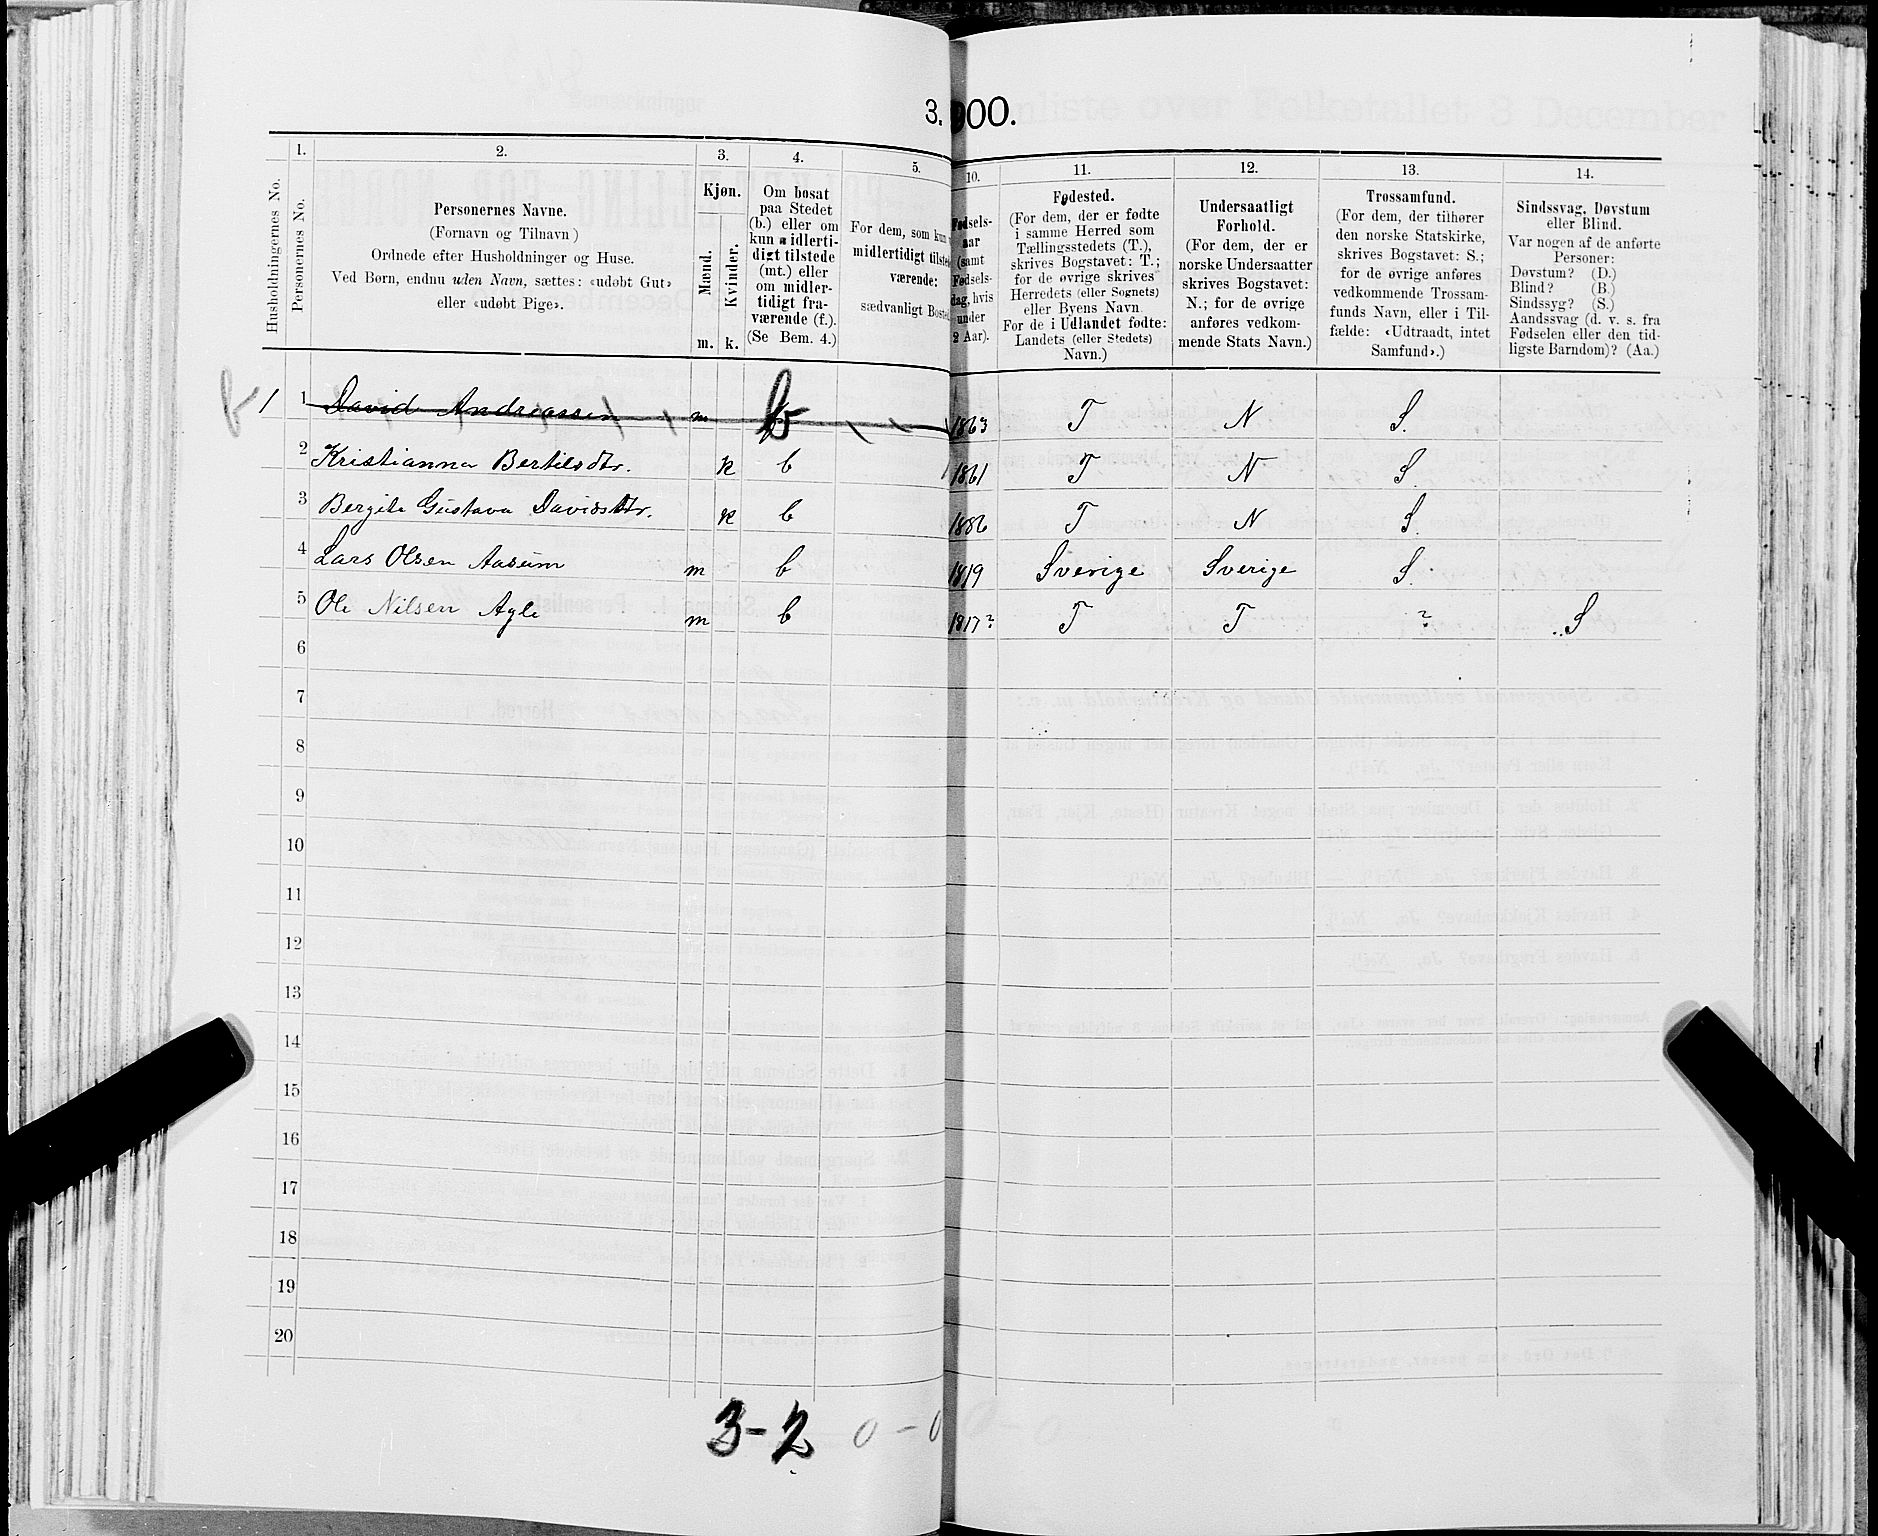 3. 00.
1. 2. 3. 4. 5. 10. 11. 12. 13. 14.
Husholdningernes No.
Personernes No.
Personernes Navne.
(Fornavn og Tilnavn)
Ordnede efter Husholdninger og Huse.
Ved Børn, endnu uden Navn, sættes: «udøbt Gut»
eller «udøbt Pige».
Kjøn.
Mænd.
Kvinder.
m. k.
Om bosat
paa Stedet
(b.) eller om
kun midlerti-
digt tilstede
(mt.) eller
om midler-
tidigt fra-
værende (f.).
(Se Bem. 4.)
For dem, som kun
midlertidigt tilste
værende:
sædvanligt Boste
Fødsels-
aar
(samt
Fødsels-
dag, hvis
under
2 Aar).
Fødested.
(For dem, der er fødte
i samme Herred som
Tællingsstedets (T.),
skrives Bogstavet: T.;
for de øvrige skrives
Herredets (eller Sognets)
eller Byens Navn.
For de i Udlandet fødte:
Landets (eller Stedets)
Navn.)
Undersaatligt
Forhold.
(For dem, der er
norske Undersaatter
skrives Bogstavet:
N.; for de øvrige
anføres vedkom-
mende Stats Navn.)
Trossamfund.
(For dem, der tilhører
den norske Statskirke,
skrives Bogstavet: S.;
for de øvrige anføres
vedkommende Trossam-
funds Navn, eller i Til-
fælde: «Udtraadt, intet
Samfund».)
Sindssvag, Døvstum
eller Blind.
Var nogen af de anførte
Personer:
Døvstum? (D.)
Blind? (B.)
Sindssyg? (S.)
Aandssvag (d. v. s. fra
Fødselen eller den tid-
ligste Barndom)? (Aa.)
1 1 David Andreassen m 1863 T N S.
2 Kristianna Bertilsdtr. k b 1861 T N S.
3 Bergite Gustava Davidsdtr. k b 1886 T N S.
4 Lars Olsen Aasum m b 1819 Sverige Sverige S.
5 Ole Nilsen Agle m b 1817? T T ? S
6
7
8
9
10
11
12
13
14
15
16
17
18
19
20
3-2 0-0 0-0